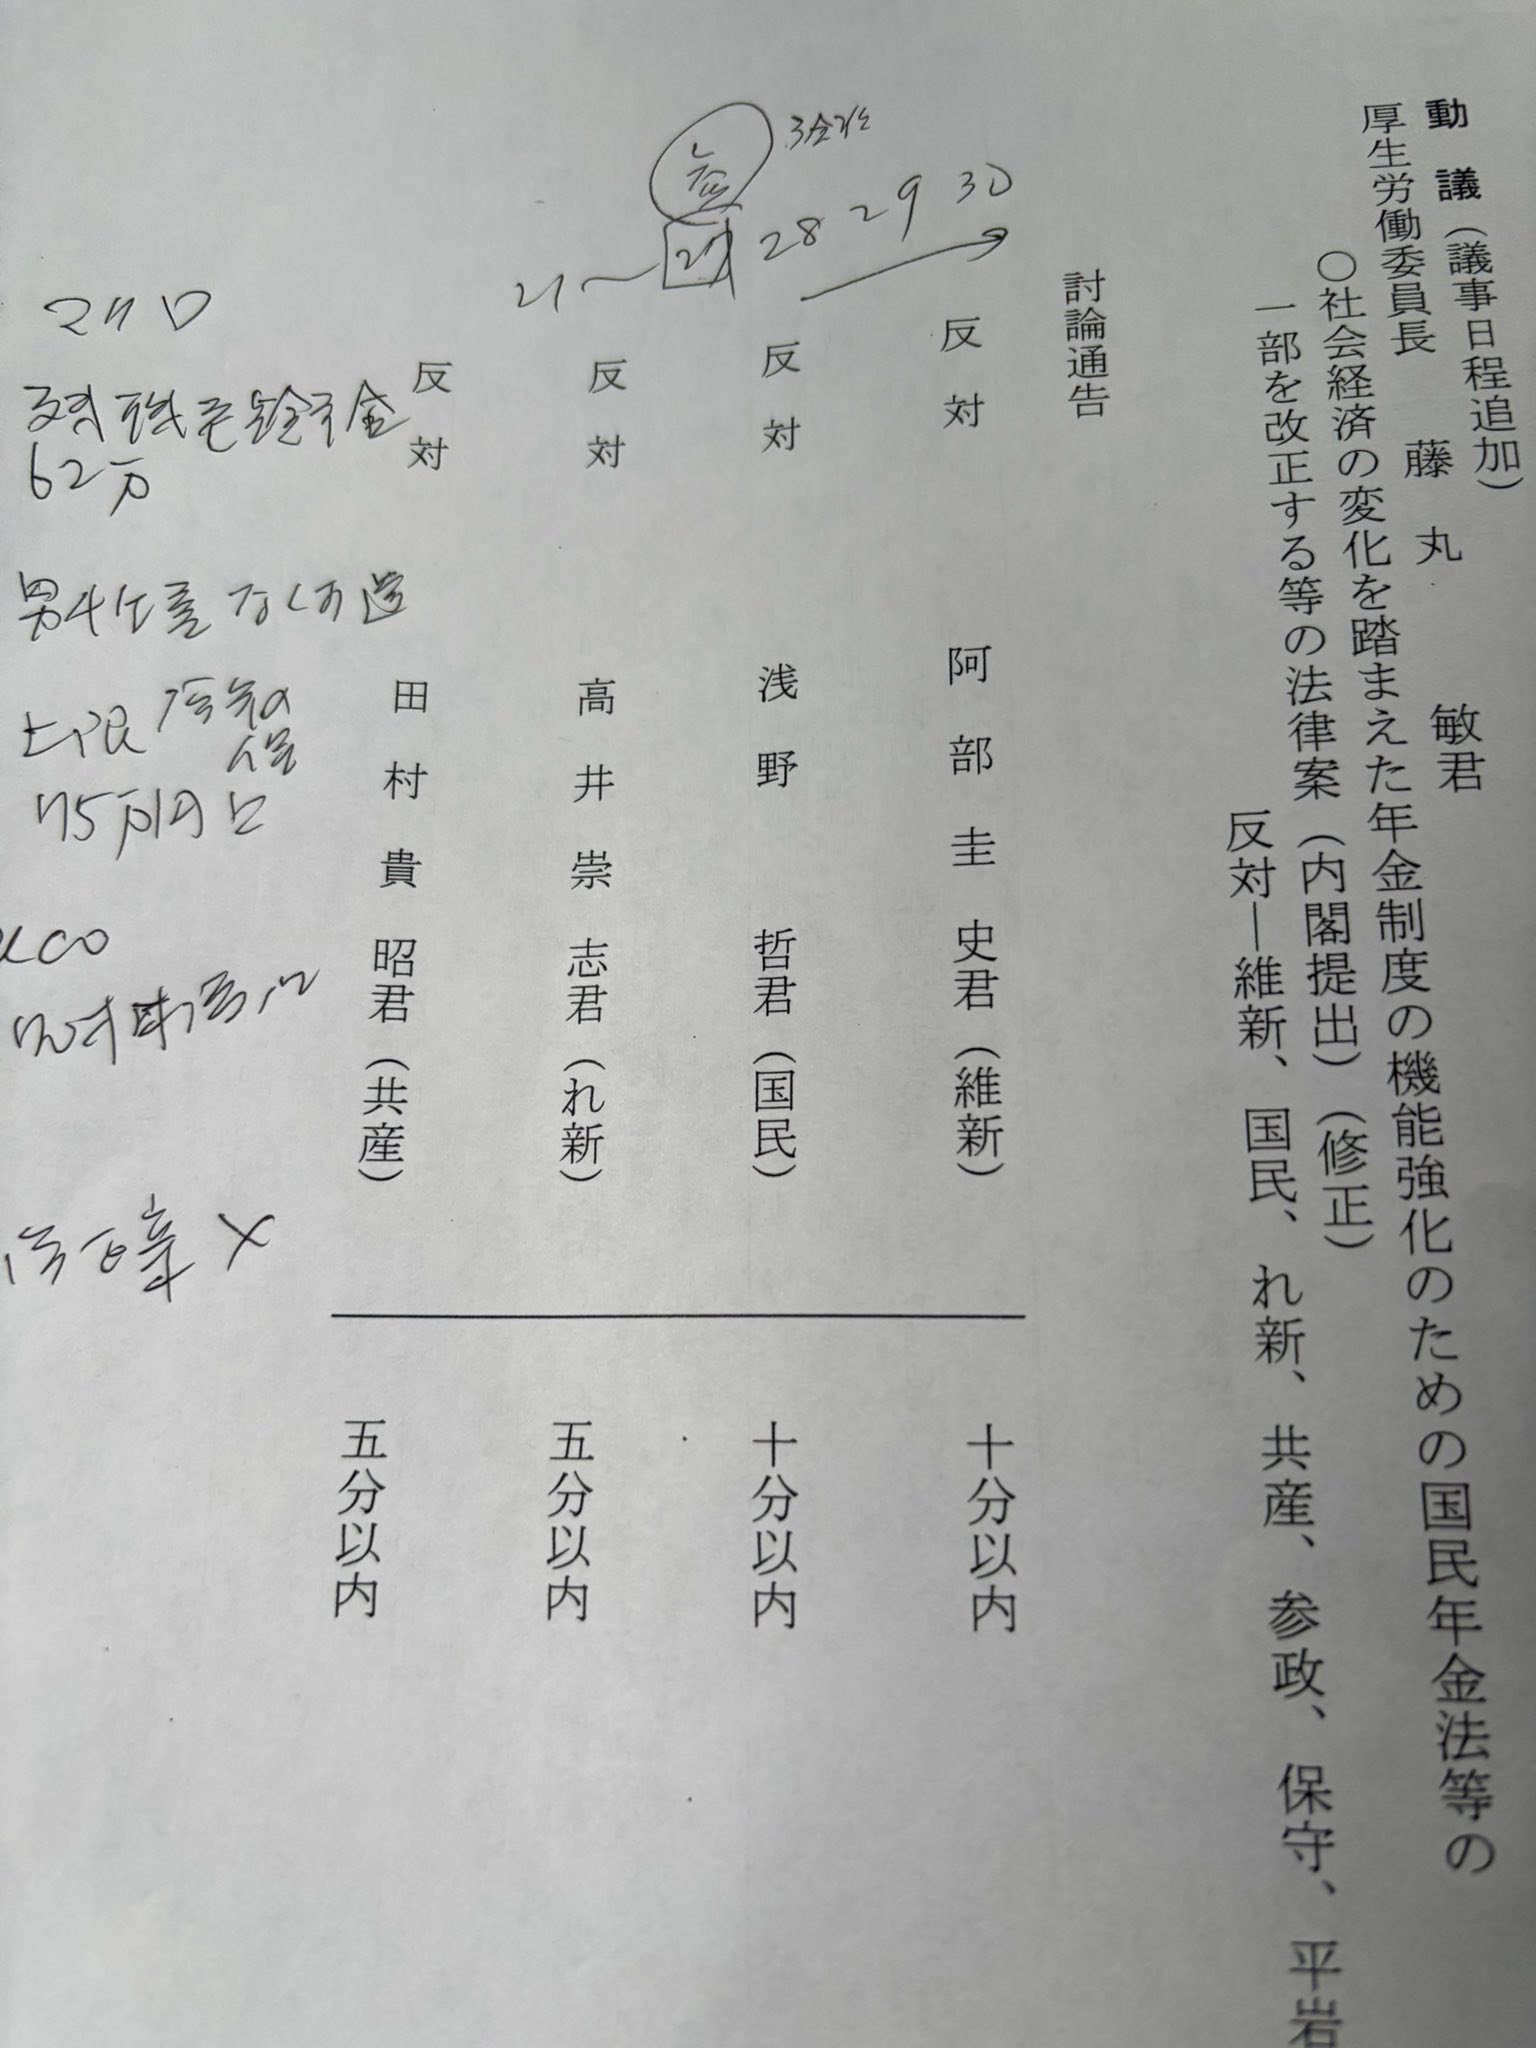 動議（議事日程追加）
厚生労働委員長 藤丸 敏君
○社会経済の変化を踏まえた年金制度の機能強化のための国民年金法等の
一部を改正する等の法律案（内閣提出）（修正）
反対―維新、国民、れ新、共産、参政、保守、平岩
討論通告
反対 阿部圭史君（維新） 十分以内
反対 浅野 哲君（国民） 十分以内
反対 高井崇志君（れ新） 五分以内
反対 田村貴昭君（共産） 五分以内
28 29 30
マクロ
62万
男女差なく
上限
75万円